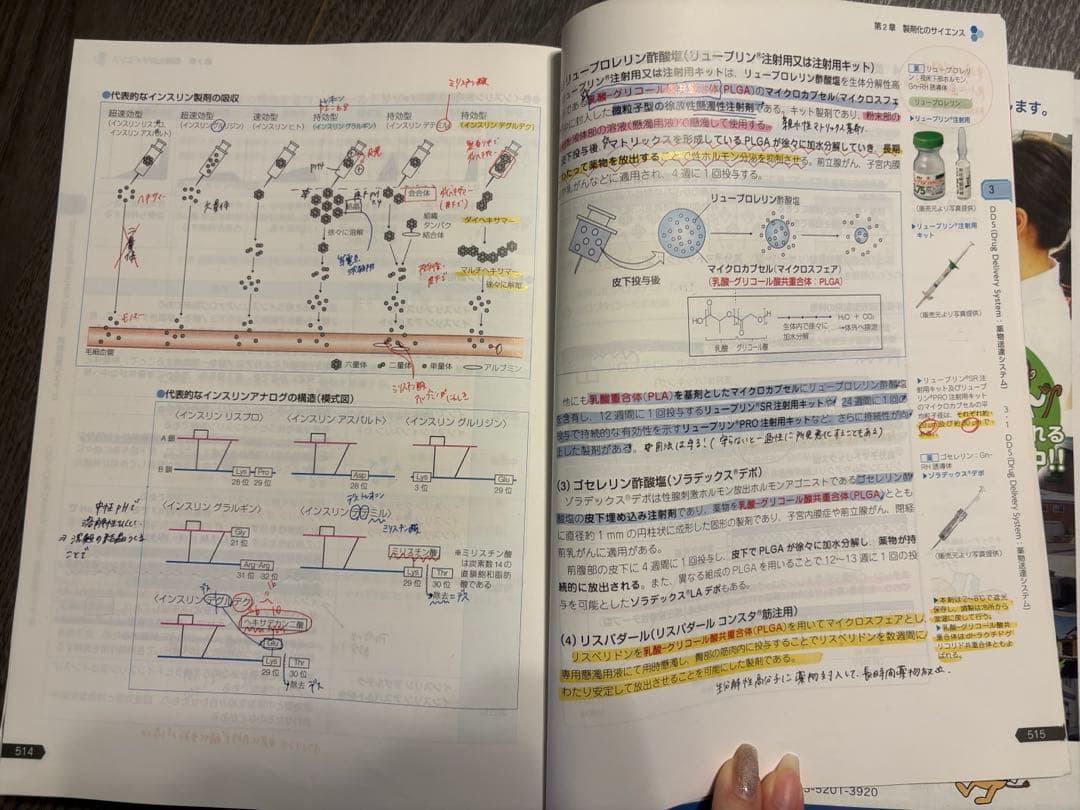 ●代表的なインスリン製剤の吸収
ミリスチン酸
超速効型
(インスリン リスプロ、
インスリン アスパルト)
超速効型
(インスリン グルリジン)
速効型
(インスリン ヒト)
持効型
(インスリングラルギン)
持効型
(インスリン デテミル)
持効型
(インスリン デグルデク)
ヘキサマー
六量体
結晶
徐々に溶解
会合体
組織
タンパク
結合体
ダイヘキサマー
マルチヘキサマー
徐々に解離
モノマー
毛細血管
六量体 二量体 単量体 アルブミン
●代表的なインスリンアナログの構造(模式図)
〈インスリン リスプロ〉
〈インスリン アスパルト〉
〈インスリン グルリジン〉
A 鎖
B 鎖
Lys Pro
28 位 29 位
Asp
28 位
Lys
3 位
Glu
29 位
〈インスリン グラルギン〉
〈インスリン デテミル〉
中性pHで
Gly
21 位
Arg Arg
31 位 32 位
ミリスチン酸
ミリスチン酸
Lys Thr
29 位 30 位
除去=デス
※ミリスチン酸
は炭素数14の
直鎖飽和脂肪
酸である
〈インスリン デグルデク〉
ヘキサデカン二酸
Glu
Lys Thr
29 位 30 位
除去 デス
514
第2章 製剤化のサイエンス
リュープロレリン酢酸塩(リュープリン®注射用又は注射用キット)
リュープリン®注射用又は注射用キットは、リュープロレリン酢酸塩を生体分解性高
である乳酸-グリコール酸共重合体(PLGA)のマイクロカプセル(マイクロスフェ
に封入した微粒子型の徐放性懸濁性注射剤である。キット製剤であり、粉末部の
を液体部の溶液(懸濁用液)で懸濁して使用する。
皮下投与後、マトリックスを形成しているPLGAが徐々に加水分解していき、長期
わたって薬物を放出することで性ホルモン分泌を抑制させる。前立腺がん、子宮内膜
乳がんなどに適用され、4週に1回投与する。
リュープロレリン酢酸塩
皮下投与後
マイクロカプセル(マイクロスフェア)
(乳酸-グリコール酸共重合体:PLGA)
乳酸 グリコール酸
生体内で徐々に
加水分解
H₂O + CO₂
→体外へ排泄
他にも乳酸重合体(PLA)を基剤としたマイクロカプセルにリュープロレリン酢酸塩
を含有し、12 週間に1回投与するリュープリン®SR注射用キットや 24 週間に1回の
投与で持続的な有効性を示すリュープリン®PRO注射用キットなど、さらに持続性が向
上した製剤がある。
(3) ゴセレリン酢酸塩(ゾラデックス®デポ)
ゾラデックス®デポは性腺刺激ホルモン放出ホルモンアゴニストであるゴセレリン酢
酸塩の皮下埋め込み注射剤であり、薬物を乳酸-グリコール酸共重合体(PLGA)ととも
に直径約1 mmの円柱状に成形した固形の製剤であり、子宮内膜症や前立腺がん、閉経
前乳がんに適用がある。
前腹部の皮下に4週間に1回投与し、皮下でPLGAが徐々に加水分解し、薬物が持
続的に放出される。また、異なる組成のPLGAを用いることで12〜13週に1回の投
与を可能としたゾラデックス®LAデポもある。
(4) リスパダール(リスパダール コンスタ®筋注用)
リスペリドンを乳酸-グリコール酸共重合体(PLGA)を用いてマイクロスフェアとし、
専用懸濁用液にて用時懸濁し、臀部の筋肉内に投与することでリスペリドンを数週間に
わたり安定して放出させることを可能にした製剤である。
生分解性高分子に薬物を封入して、長時間薬物放出.
薬 リュープロレリ
ン:視床下部ホルモン、
Gn-RH誘導体
リュープロレリン
▶リュープリン®注射用
(販売元より写真提供)
▶リュープリン®注射用
キット
(販売元より写真提供)
▶リュープリン®SR注
射用キット及びリュープ
リン®PRO注射用キット
のマイクロカプセルの平
均粒子径は、それぞれ約
薬 ゴセレリン:Gn-
RH誘導体
▶ゾラデックス®デポ
(販売元より写真提供)
▶本剤は2〜8℃で遮光
保存し、調製は冷所から
室温に戻して行う。
▶乳酸-グリコール酸共
重合体はdl-ラクチド・グ
リコリド共重合体ともよ
ばれる。
3
DDS(Drug Delivery System:薬物送達システム)
3・1 DDS(Drug Delivery System:薬物送達システム)
515
ます。
-5201-3920